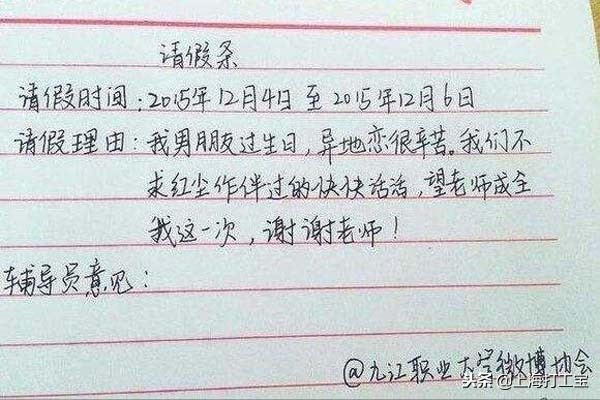 请假条
请假时间：2015年12月4日至2015年12月6日
请假理由：我男朋友过生日，异地恋很辛苦。我们不
求红尘作伴过的快快活活，望老师成全
我这一次，谢谢老师！
辅导员意见：
@九江职业大学微博协会
头条@上海打工宝